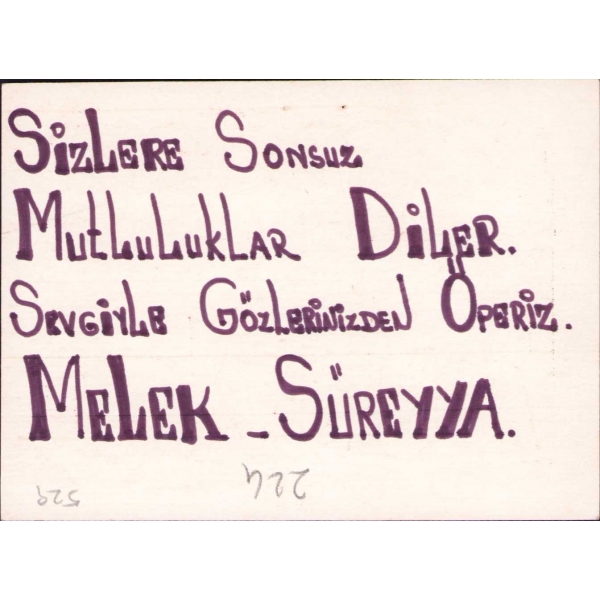 Sizlere Sonsuz
Mutluluklar Diler.
Sevgiyle Gözlerinizden Öperiz.
Melek - Süreyya.
224
529